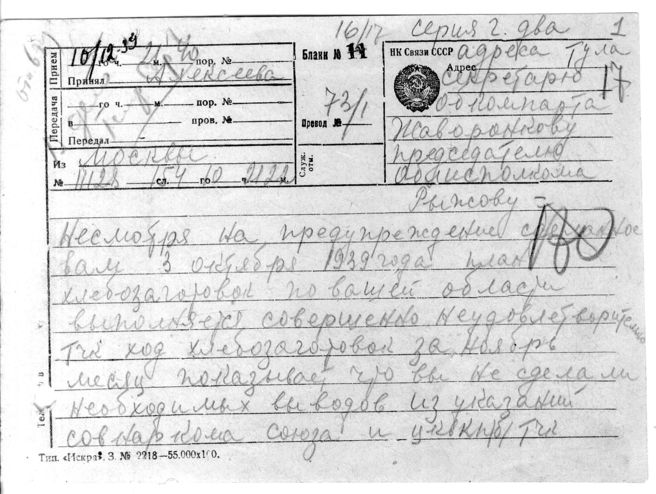 16/12 серия г. два 1
10/12.39
Прием
го ч. м. пор. №
21 40
Принял Алексеева
Передача
го ч. м. пор. №
в пров. №
Передал
Бланк № 11
Перевод № 73/1
Служ. отм.
НК Связи СССР
Адрес
адреса Тула
секретарю 17
обкомпарта
Жаворонкову
председателю
облисполкома
Рыжову =
Из Москвы
№ сл. го ч. м.
154 10 2122
180
Несмотря на предупреждение сделанное
вам 3 октября 1939 года план
хлебозаготовок по вашей области
выполняется совершенно неудовлетворительно
тчк ход хлебозаготовок за ноябрь
месяц показывает что вы не сделали
необходимых выводов из указаний
совнаркома союза и цк вкп/б/ тчк
Тип. «Искра». З. № 2218—55.000х100.